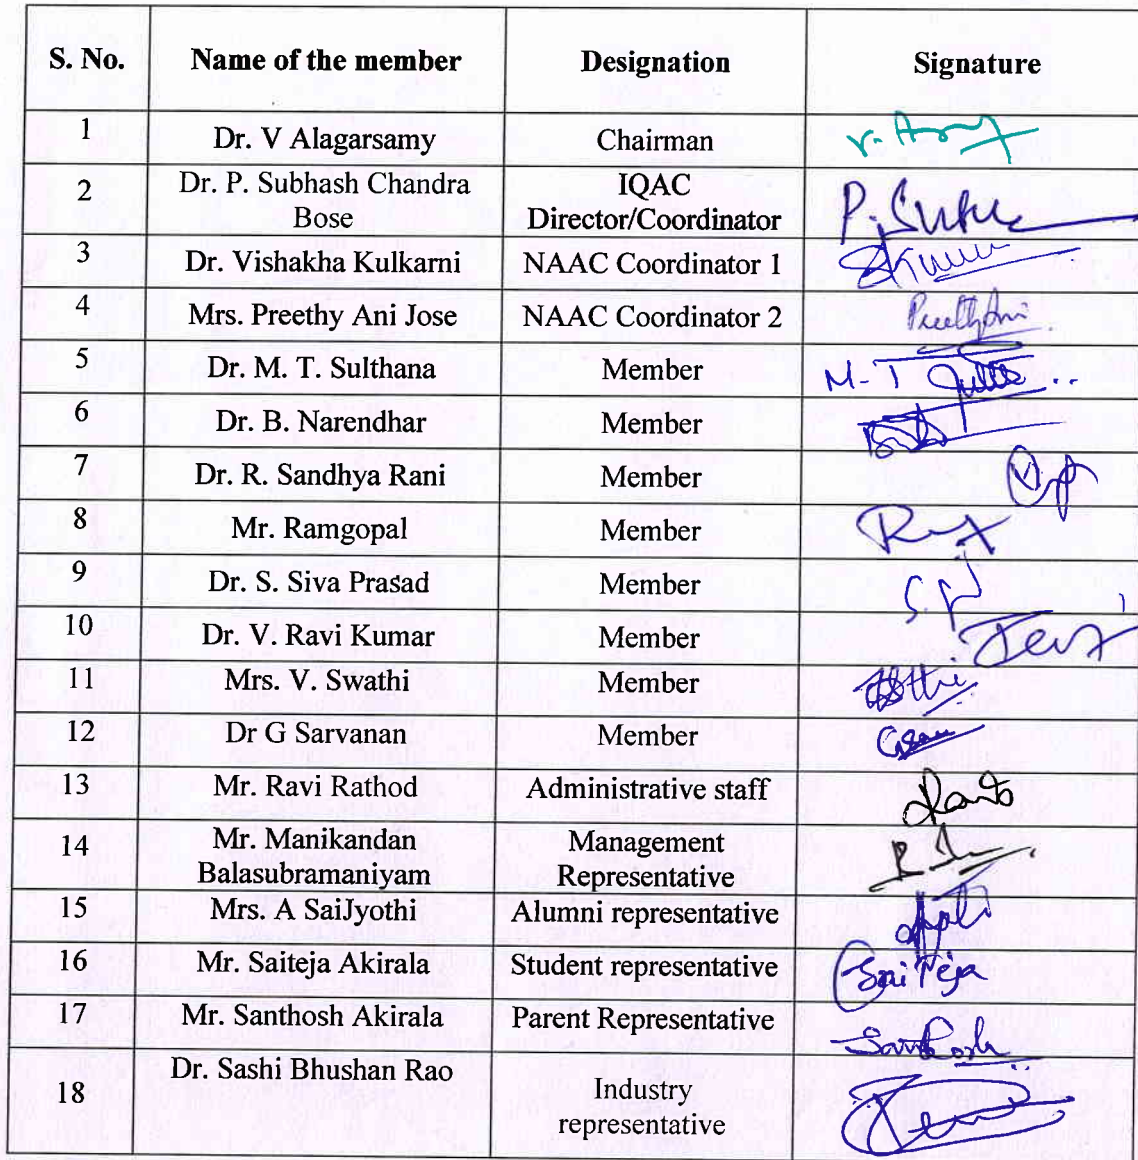 S. No. Name of the member Designation Signature
1 Dr. V Alagarsamy Chairman
2 Dr. P. Subhash Chandra IQAC
Bose Director/Coordinator
3 Dr. Vishakha Kulkarni NAAC Coordinator 1
4 Mrs. Preethy Ani Jose NAAC Coordinator 2 PreethyAni
5 Dr. M. T. Sulthana Member M-T
6 Dr. B. Narendhar Member
7 Dr. R. Sandhya Rani Member
8 Mr. Ramgopal Member
9 Dr. S. Siva Prasad Member
10 Dr. V. Ravi Kumar Member
11 Mrs. V. Swathi Member
12 Dr G Sarvanan Member
13 Mr. Ravi Rathod Administrative staff
14 Mr. Manikandan Management
Balasubramaniyam Representative
15 Mrs. A SaiJyothi Alumni representative
16 Mr. Saiteja Akirala Student representative SaiTeja
17 Mr. Santhosh Akirala Parent Representative Santhosh
18 Dr. Sashi Bhushan Rao Industry
representative